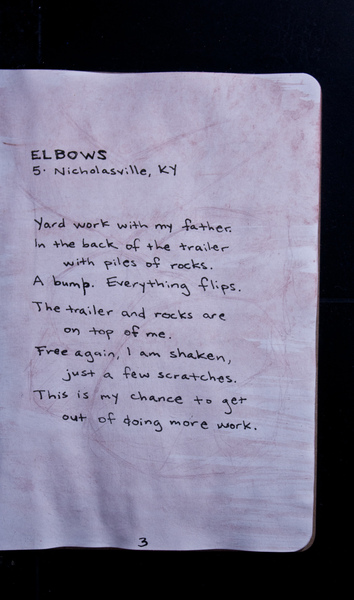 ELBOWS
5. Nicholasville, KY
Yard work with my father.
In the back of the trailer
with piles of rocks.
A bump. Everything flips.
The trailer and rocks are
on top of me.
Free again, I am shaken,
just a few scratches.
This is my chance to get
out of doing more work.
3